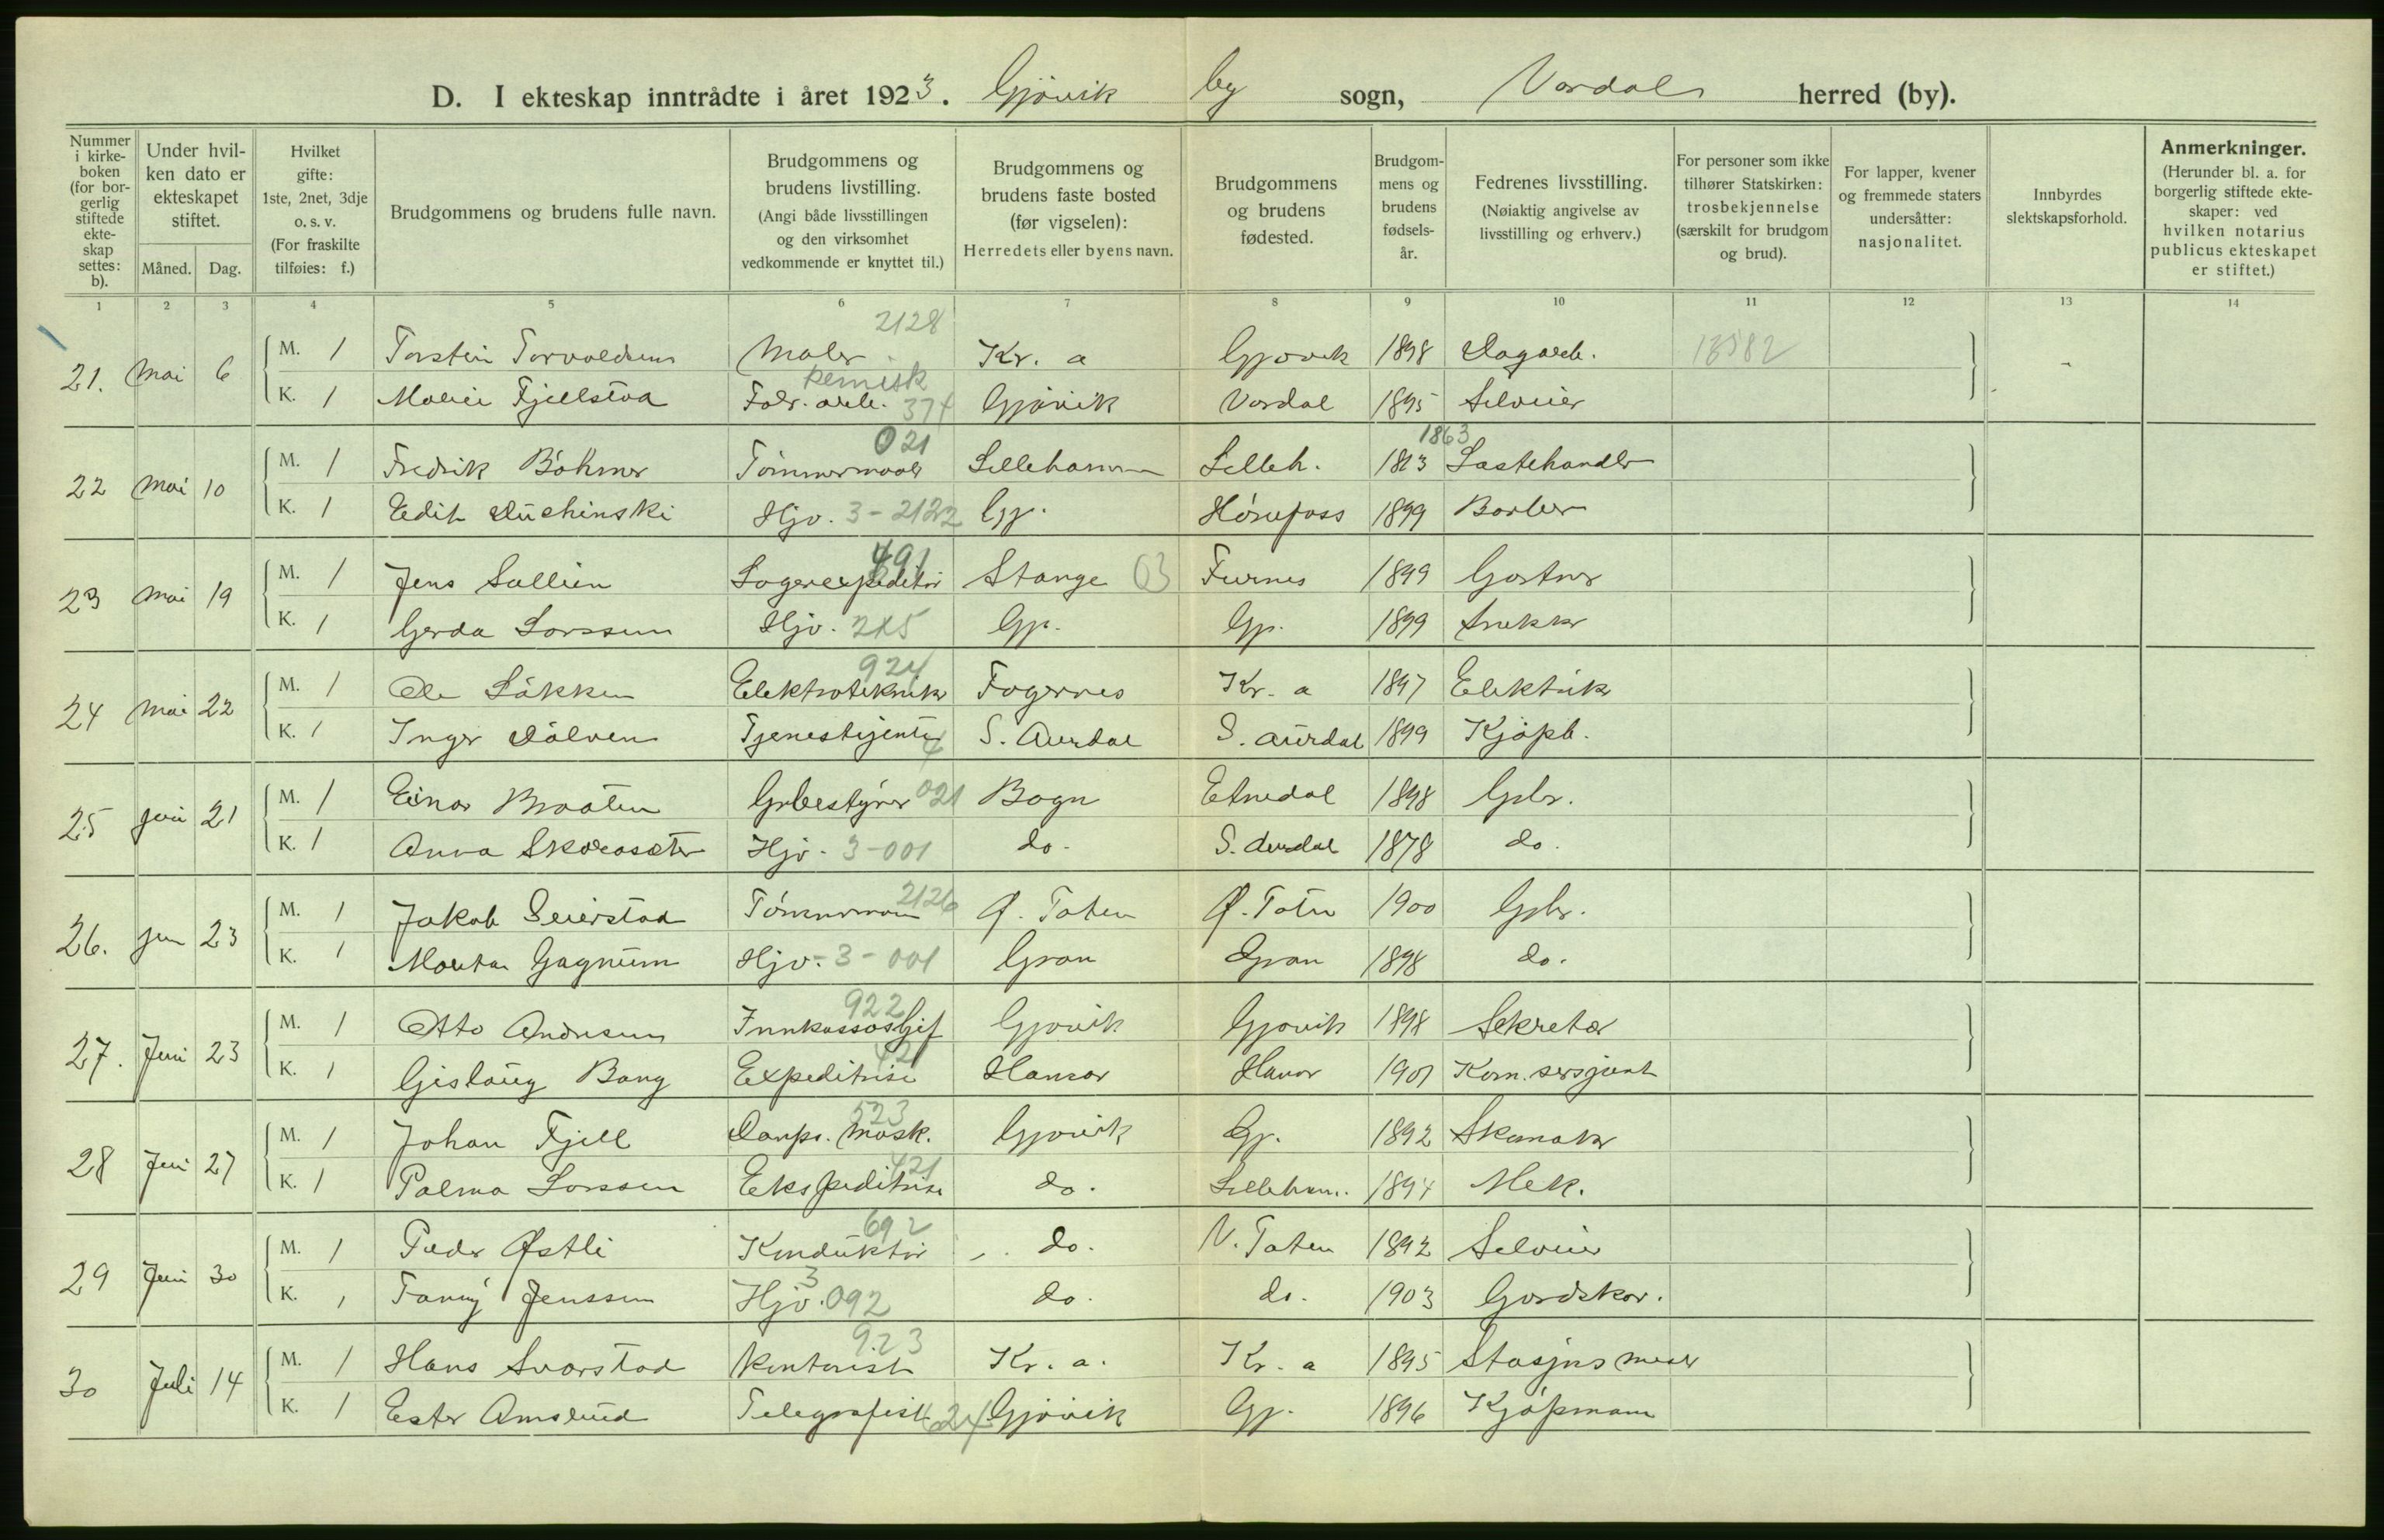 D. I ekteskap inntrådte i året 1923. Gjövik by sogn, Vardal herred (by).
Nummer i kirkeboken (for borgerlig stiftede ekteskap settes: b).
Under hvilken dato er ekteskapet stiftet.
Måned. Dag.
Hvilket gifte: 1ste, 2net, 3dje o. s. v. (For fraskilte tilføies: f.)
Brudgommens og brudens fulle navn.
Brudgommens og brudens livstilling. (Angi både livsstillingen og den virksomhet vedkommende er knyttet til.)
Brudgommens og brudens faste bosted (før vigselen): Herredets eller byens navn.
Brudgommens og brudens fødested.
Brudgommens og brudens fødselsår.
Fedrenes livsstilling. (Nøiaktig angivelse av livsstilling og erhverv.)
For personer som ikke tilhører Statskirken: trosbekjennelse (særskilt for brudgom og brud).
For lapper, kvener og fremmede staters undersåtter: nasjonalitet.
Innbyrdes slektskapsforhold.
Anmerkninger. (Herunder bl. a. for borgerlig stiftede ekteskaper: ved hvilken notarius publicus ekteskapet er stiftet.)
1 2 3 4 5 6 7 8 9 10 11 12 13 14
2128
21. Mai 6 M. 1 Torstein Torvaldsen Maler Kr. a Gjøvik 1898 Dagarb. 13582
kemisk
K. 1 Fjellstad Fabr. arb. 374 Gjövik Vardal 1895 Selveier
021 1863
22 Mai 10 M. 1 Fredrik Böhmer Tömmermaaler Lillehammer Lilleh. 1813 Lastehandler
K. 1 Edit Duchinski Hjv. 3-2122 Gj. Hönefoss 1899 Barber
491
23 Mai 19 M. 1 Jens Sollien Lagerexpeditör Stange 03 Furnes 1899 Gartner
K. 1 Gerda Larssen Hjv. 215 Gj. Gj. 1899 Snekker
924
24 Mai 22 M. 1 Ole Låkken Elektrotekniker Fagernes Kr. a 1897 Elektriker
K. 1 Inger Dölven Tjenestejente 4 S. Aurdal S. Aurdal 1899 Kjöpb.
25 juni 21 M. 1 Einar Braaten Grbestyrer 021 Bagn Etnedal 1898 Gbr.
K. 1 Anna Hjv. 3-001 do. S. Aurdal 1878 do.
26. jun 23 M. 1 Jakob Seierstad Tömmermann 2126 Ø. Toten Ø. Toten 1900 Gbr.
K. 1 Marta Gagnum Hjv. 3-001 Gran Gran 1898 do.
922
27. Juni 23 M. 1 Otto Andresen Gjövik Gjövik 1898 Sekretær
421
K. 1 Gislaug Bang Expeditrise Hamar Hamar 1901 Kom. sersjant
523
28 Juni 27 M. 1 Johan Fjell Damps. mask. Gjövik Gj. 1892 Skomaker
421
K. 1 Palma Larssen Ekspeditrise do. Lilleham. 1894 Mek.
692
29 Juni 30 M. 1 Peder Østli Konduktör do. V. Toten 1892 Selveier
3
K. 1 Fanny Jenssen Hjv. 092 do. do. 1903 Gardskar.
923
30 Juli 14 M. 1 Hans Svarstad Kontorist Kr. a. Kr. a 1895 Stasjonsmester
K. 1 Ester Amslund Telegrafist 624 Gjövik Gj. 1896 Kjöpmann